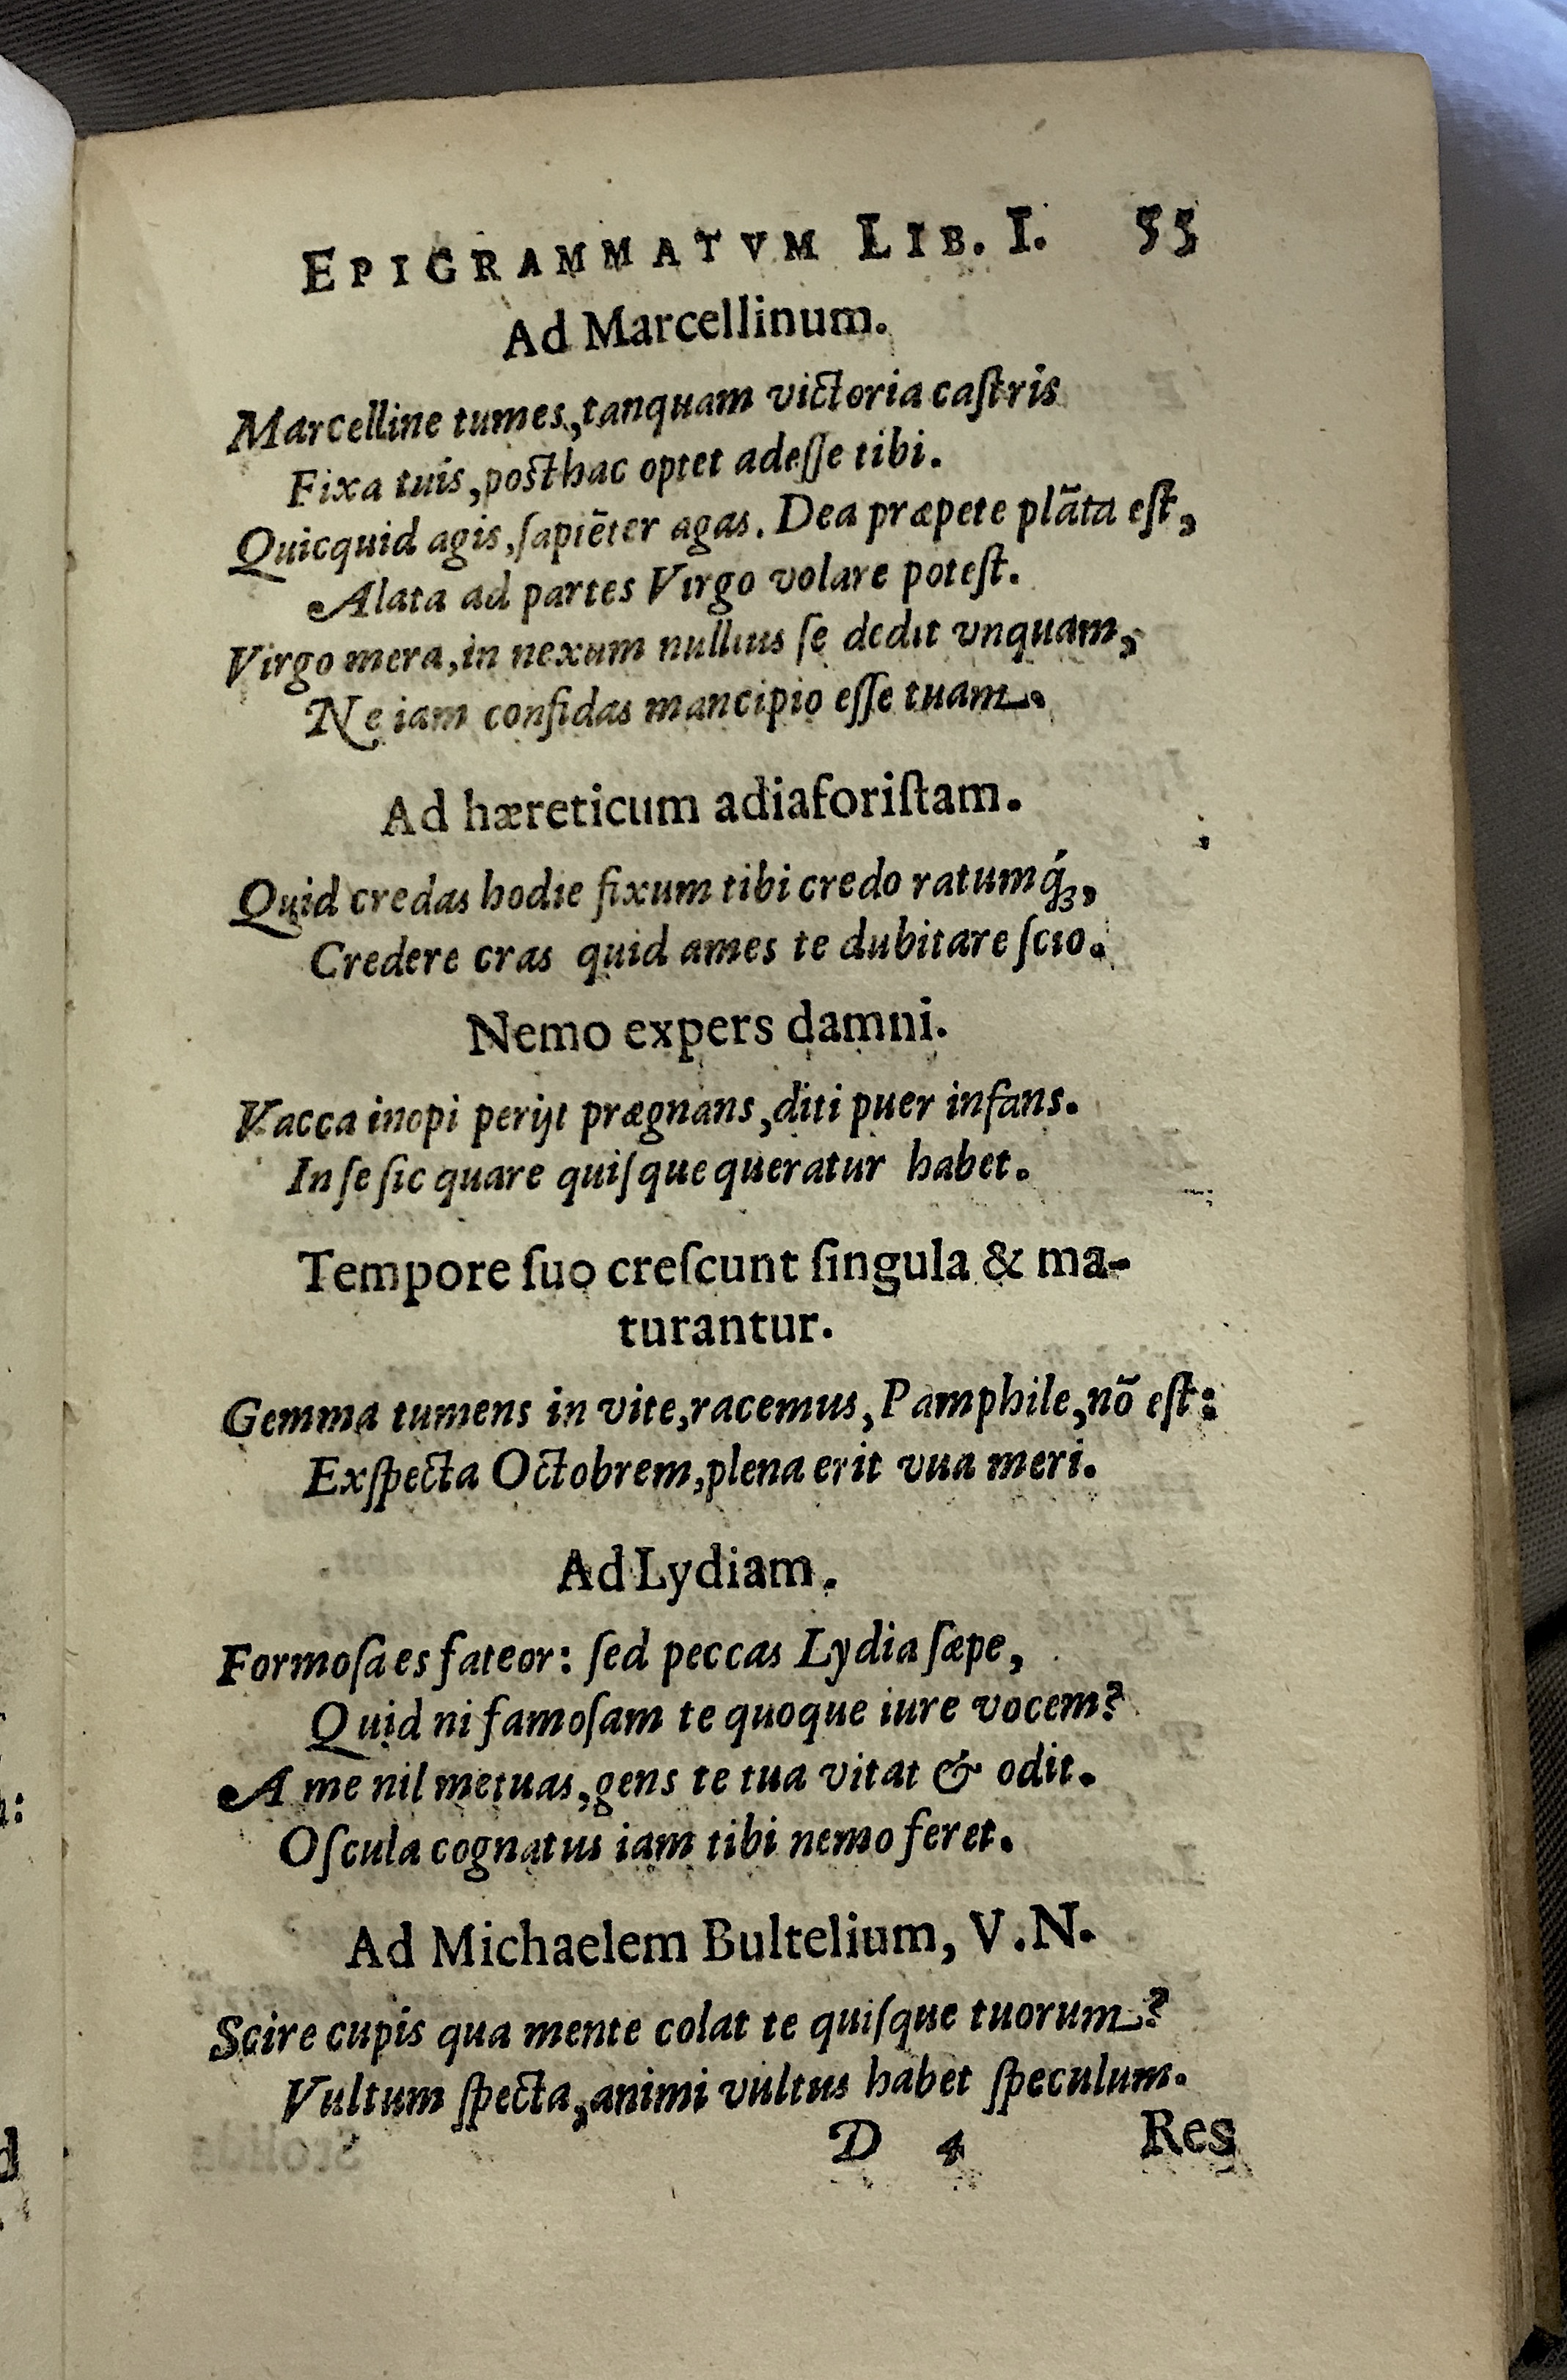 EPIGRAMMATVM LIB. I. 55
Ad Marcellinum.
Marcelline tumes, tanquam victoria caſtris
Fixa tuis, poſthac optet adeſſe tibi.
Quicquid agis, ſapiēter agas. Dea præpete plāta eſt,
Alata ad partes Virgo volare poteſt.
Virgo mera, in nexum nullius ſe dedit vnquam,
Ne iam confidas mancipio eſſe tuam.
Ad hæreticum adiaforiſtam.
Quid credas hodie fixum tibi credo ratumq́;,
Credere cras quid ames te dubitare ſcio.
Nemo expers damni.
Vacca inopi perijt prægnans, diti puer infans.
In ſe ſic quare quiſque queratur habet.
Tempore ſuo creſcunt ſingula & ma-
turantur.
Gemma tumens in vite, racemus, Pamphile, nō eſt:
Exſpecta Octobrem, plena erit vua meri.
Ad Lydiam.
Formoſa es fateor: ſed peccas Lydia ſæpe,
Quid ni famoſam te quoque iure vocem?
A me nil metuas, gens te tua vitat & odit.
Oſcula cognatus iam tibi nemo feret.
Ad Michaelem Bultelium, V.N.
Scire cupis qua mente colat te quiſque tuorum?
Vultum ſpecta, animi vultus habet ſpeculum.
D 4 Res